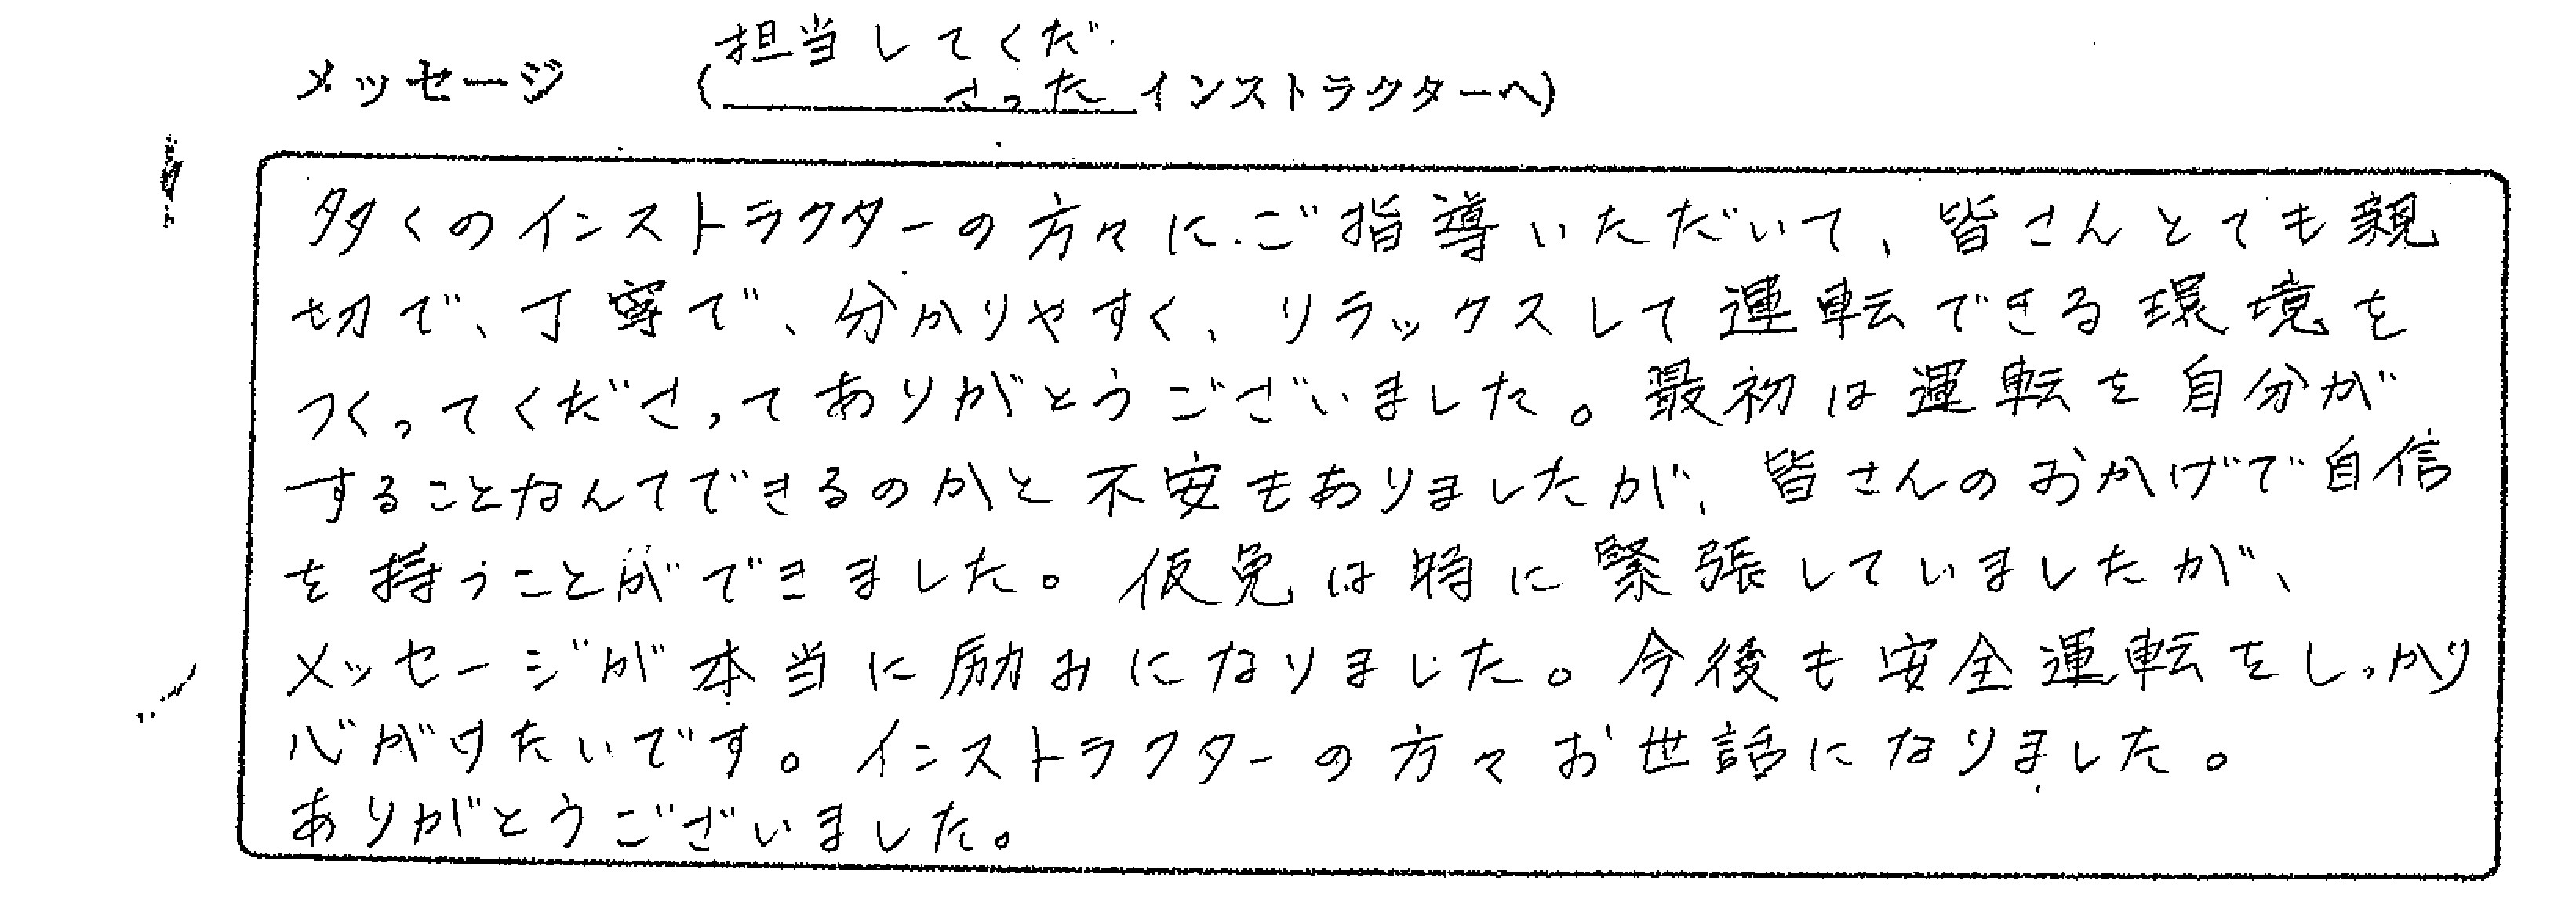 メッセージ (担当してくだ
さった インストラクターへ)
多くのインストラクターの方々にご指導いただいて、皆さんとても親
切で、丁寧で、分かりやすく、リラックスして運転できる環境を
つくってくださってありがとうございました。最初は運転を自分が
することなんてできるのかと不安もありましたが、皆さんのおかげで自信
を持うことができました。仮免は特に緊張していましたが、
メッセージが本当に励みになりました。今後も安全運転をしっかり
心がけたいです。インストラクターの方々お世話になりました。
ありがとうございました。